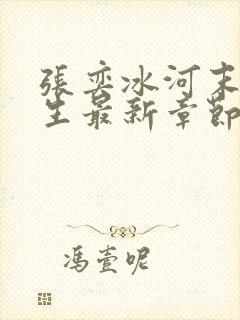 張奕冰河末
生最新章節
馮壹呢